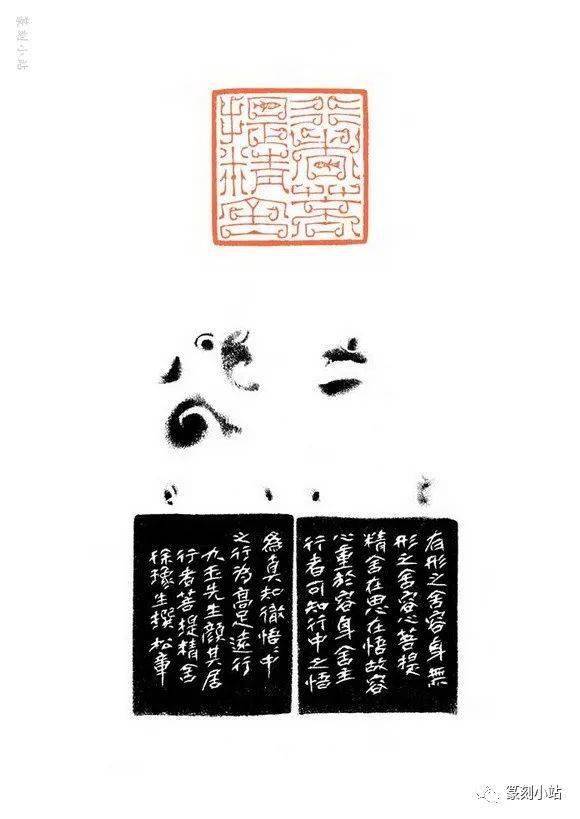 篆刻小站
行者菩
提精舍
有形之舍容身無
形之舍容心菩提
精舍在思在悟故容
心重於容身舍主
行者可知行中之悟
為真知徹悟〻中
之行為高足遠行
九玉先生顏其居
行者菩提精舍
徐生撰松
篆刻小站